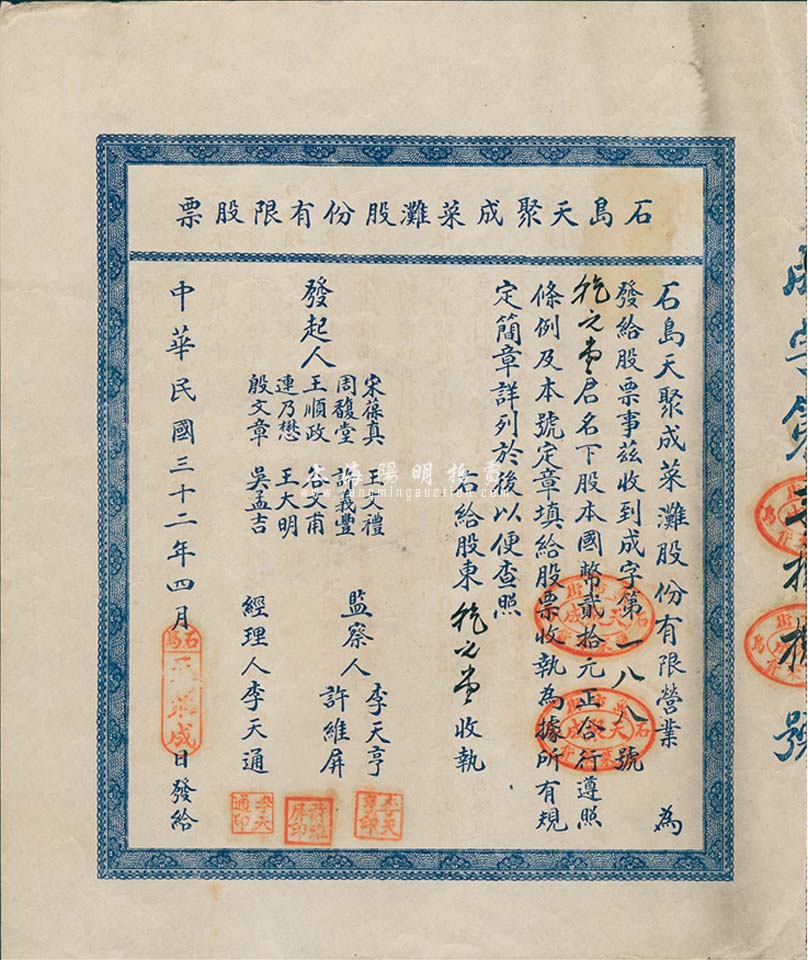 石島天聚成菜灘股份有限股票
石島天聚成菜灘股份有限營業 為
發給股票事茲收到成字第一八八號
乾元堂君名下股本國幣貳拾元正合行遵照
條例及本號定章填給股票收執為據所有規
定簡章詳列於後以便查照
右給股東乾元堂收執
發起人
宋葆真 王文禮
周馥堂 許義豐
王順政 谷文甫
連乃懋 王大明
殷文章 吳孟吉
監察人 李天亨
許維屏
經理人 李天通
中華民國三十二年四月 日發給
石島
成
李天亨印
許維屏印
李天通印
上海陽明拍賣
www.yangmingauction.com